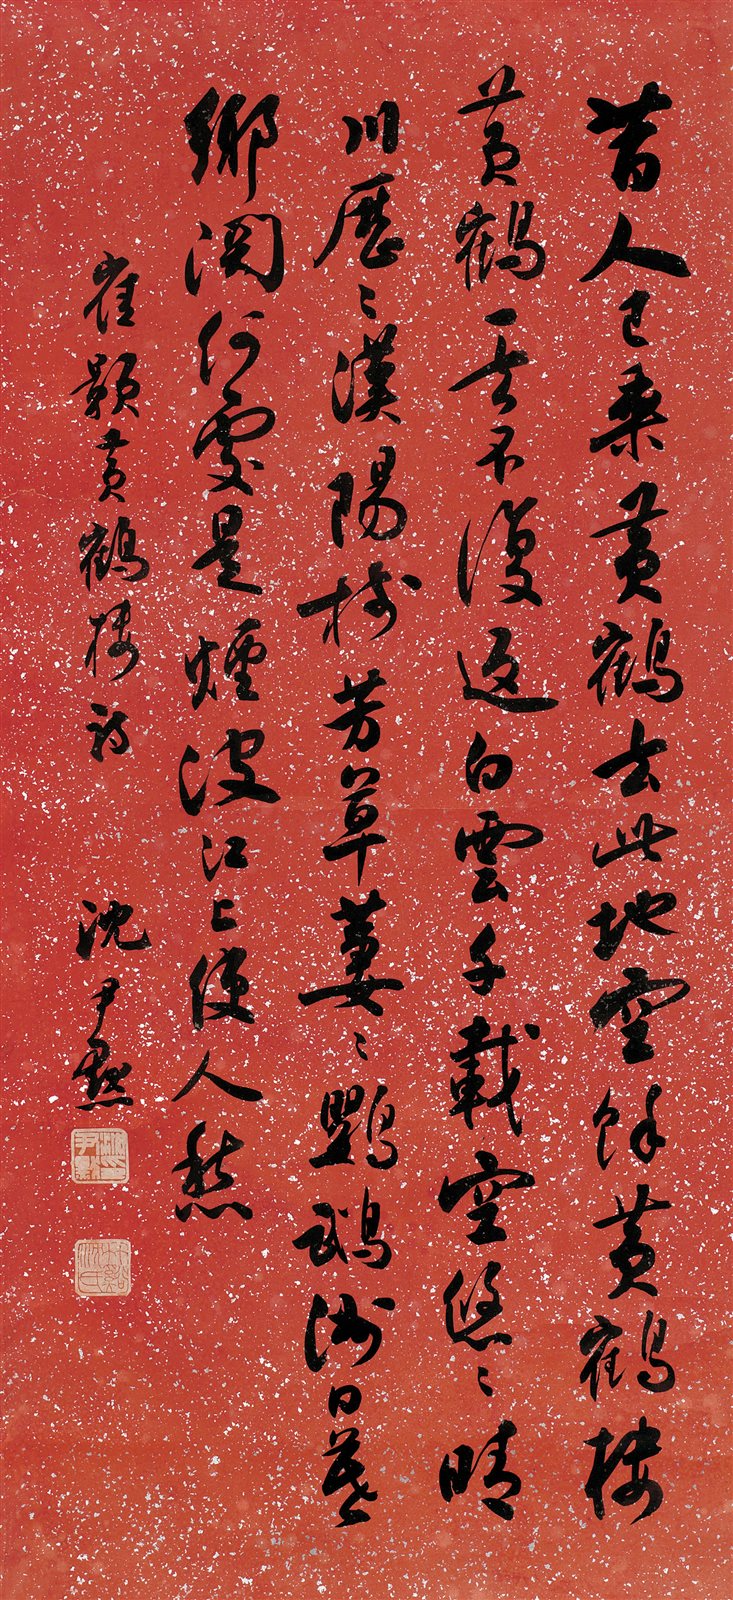 昔人已乘黃鶴去此地空餘黃鶴樓
黃鶴一去不復返白雲千載空悠〻晴
川歷〻漢陽樹芳草萋〻鸚鵡洲日暮
鄉關何處是煙波江上使人愁
崔顥黃鶴樓詩 沈尹默
竹谿沈氏